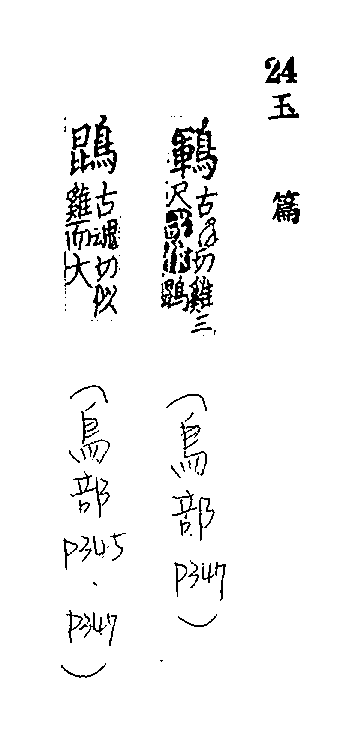 24
玉篇
鶤 古渾切雞三
尺
(鳥部
P347)
鵾 古魂切似
雞而大
(鳥部
P345
·
P347)